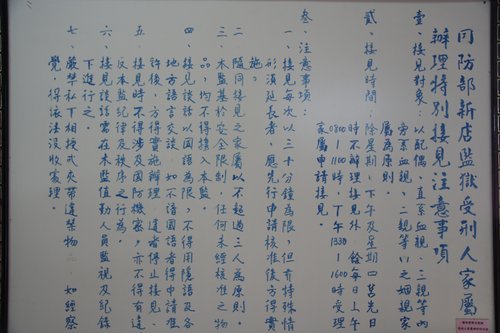 國防部新店監獄受刑人家屬
辦理特別接見注意事項
壹、接見對象:以配偶、直系血親、三親等內
旁系血親、二親等內之姻親家
屬為原則。
貳、接見時間:除星期、下午及星期四莒光
時不辦理接見外,餘每日上午
0800—1100時,下午1330—1600時受理
家屬申請接見。
參、注意事項:
一、接見每次以三十分鐘為限,但有特殊情
形須延長者,應先行申請核准後方得實
施。
二、隨同接見之家屬以不超過三人為原則。
三、本監基於安全限制,任何未經核准之物
品,均不得攜入本監。
四、接見談話以國語為限,不得用隱語及各
地方語言交談,如不諳國語者得申請准
許後,方得實施辦理,違者停止接見。
五、接見時不得涉及國防機密,亦不得有違
反本監紀律及秩序之行為。
六、接見談話需在本監值勤人員監視及紀錄
下進行之。
七、嚴禁私下相授或夾帶違禁物品,如經察
覺,得依法沒收處理。